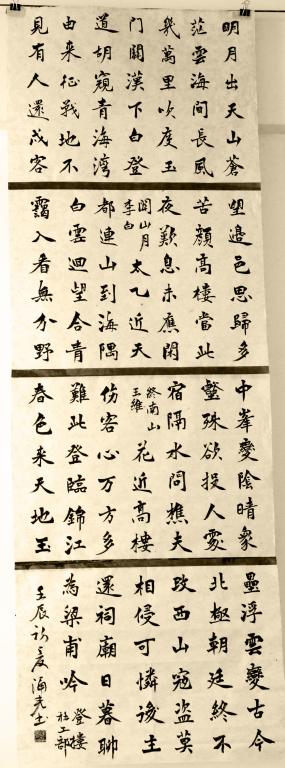 明月出天山蒼
茫雲海間長風
幾萬里吹度玉
門關漢下白登
道胡窺青海灣
由来征戰地不
見有人還戍客
望邊邑思歸多
苦顏高樓當此
夜歎息未應閑
關山月
李白
太乙近天
都連山到海隅
白雲迴望合青
靄入看無分野
中峯變陰晴衆
壑殊欲投人處
宿隔水問樵夫
終南山
王維
花近高樓
傷客心万方多
難此登臨錦江
春色来天地玉
壘浮雲變古今
北極朝廷終不
改西山寇盗莫
相侵可憐後主
還祠廟日暮聊
為梁甫吟
登樓
杜工部
壬辰初夏海